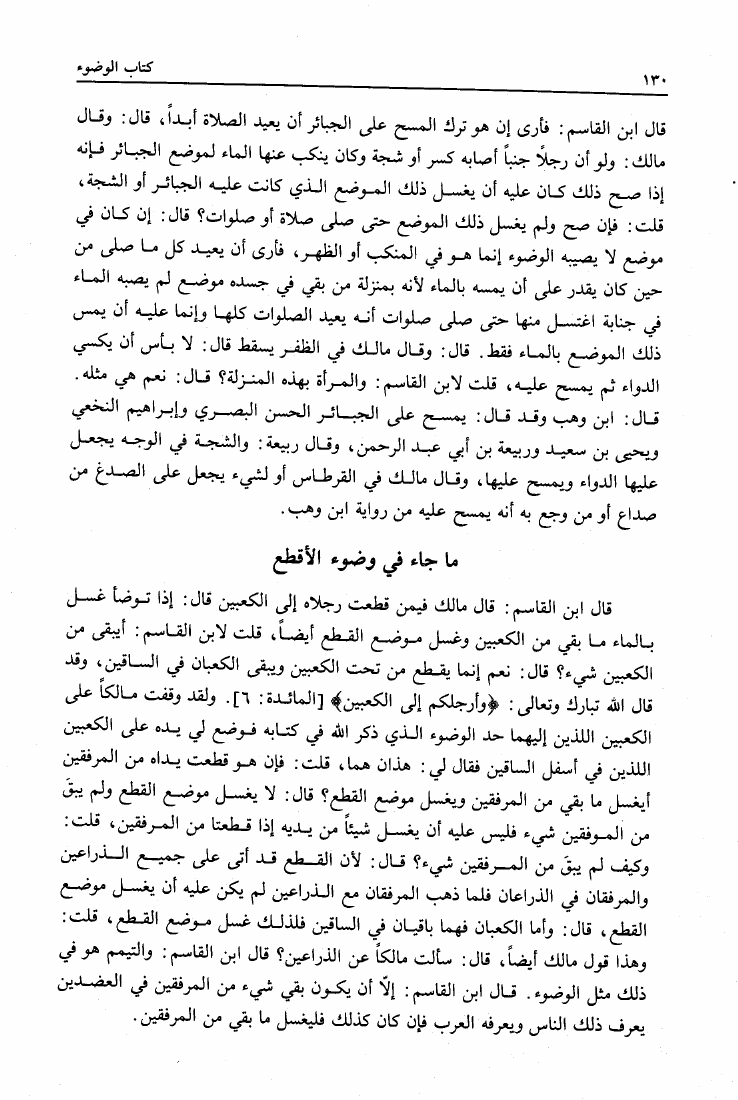 ١٣٠
كتاب الوضوء
قال ابن القاسم: فأرى إن هو ترك المسح على الجبائر أن يعيد الصلاة أبداً، قال: وقال
مالك: ولو أن رجلاً جنباً أصابه كسر أو شجة وكان ينكب عنها الماء لموضع الجبائر فإنه
إذا صح ذلك كان عليه أن يغسل ذلك الموضع الذي كانت عليه الجبائر أو الشجة،
قلت: فإن صح ولم يغسل ذلك الموضع حتى صلى صلاة أو صلوات؟ قال: إن كان في
موضع لا يصيبه الوضوء إنما هو في المنكب أو الظهر، فأرى أن يعيد كل ما صلى من
حين كان يقدر على أن يمسه بالماء لأنه بمنزلة من بقي في جسده موضع لم يصبه الماء
في جنابة اغتسل منها حتى صلى صلوات أنه يعيد الصلوات كلها وإنما عليه أن يمس
ذلك الموضع بالماء فقط. قال: وقال مالك في الظفر يسقط قال: لا بأس أن يكسي
الدواء ثم يمسح عليه، قلت لابن القاسم: والمرأة بهذه المنزلة؟ قال: نعم هي مثله.
قال: ابن وهب وقد قال: يمسح على الجبائر الحسن البصري وإبراهيم النخعي
ويحيى بن سعيد وربيعة بن أبي عبد الرحمن، وقال ربيعة: والشجة في الوجه يجعل
عليها الدواء ويمسح عليها، وقال مالك في القرطاس أو لشيء يجعل على الصدغ من
صداع أو من وجع به أنه يمسح عليه من رواية ابن وهب.
ما جاء في وضوء الأقطع
قال ابن القاسم: قال مالك فيمن قطعت رجلاه إلى الكعبين قال: إذا توضأ غسل
بالماء ما بقي من الكعبين وغسل موضع القطع أيضاً، قلت لابن القاسم: أيبقى من
الكعبين شيء؟ قال: نعم إنما يقطع من تحت الكعبين ويبقى الكعبان في الساقين، وقد
قال الله تبارك وتعالى: ﴿وأرجلكم إلى الكعبين﴾ [المائدة: ٦]. ولقد وقفت مالكاً على
الكعبين اللذين إليهما حد الوضوء الذي ذكر الله في كتابه فوضع لي يده على الكعبين
اللذين في أسفل الساقين فقال لي: هذان هما، قلت: فإن هو قطعت يداه من المرفقين
أيغسل ما بقي من المرفقين ويغسل موضع القطع؟ قال: لا يغسل موضع القطع ولم يبقَ
من الموفقين شيء فليس عليه أن يغسل شيئاً من يديه إذا قطعتا من المرفقين، قلت:
وكيف لم يبقَ من المرفقين شيء؟ قال: لأن القطع قد أتى على جميع الذراعين
والمرفقان في الذراعان فلما ذهب المرفقان مع الذراعين لم يكن عليه أن يغسل موضع
القطع، قال: وأما الكعبان فهما باقيان في الساقين فلذلك غسل موضع القطع، قلت:
وهذا قول مالك أيضاً، قال: سألت مالكاً عن الذراعين؟ قال ابن القاسم: والتيمم هو في
ذلك مثل الوضوء. قال ابن القاسم: إلّا أن يكون بقي شيء من المرفقين في العضدين
يعرف ذلك الناس ويعرفه العرب فإن كان كذلك فليغسل ما بقي من المرفقين.